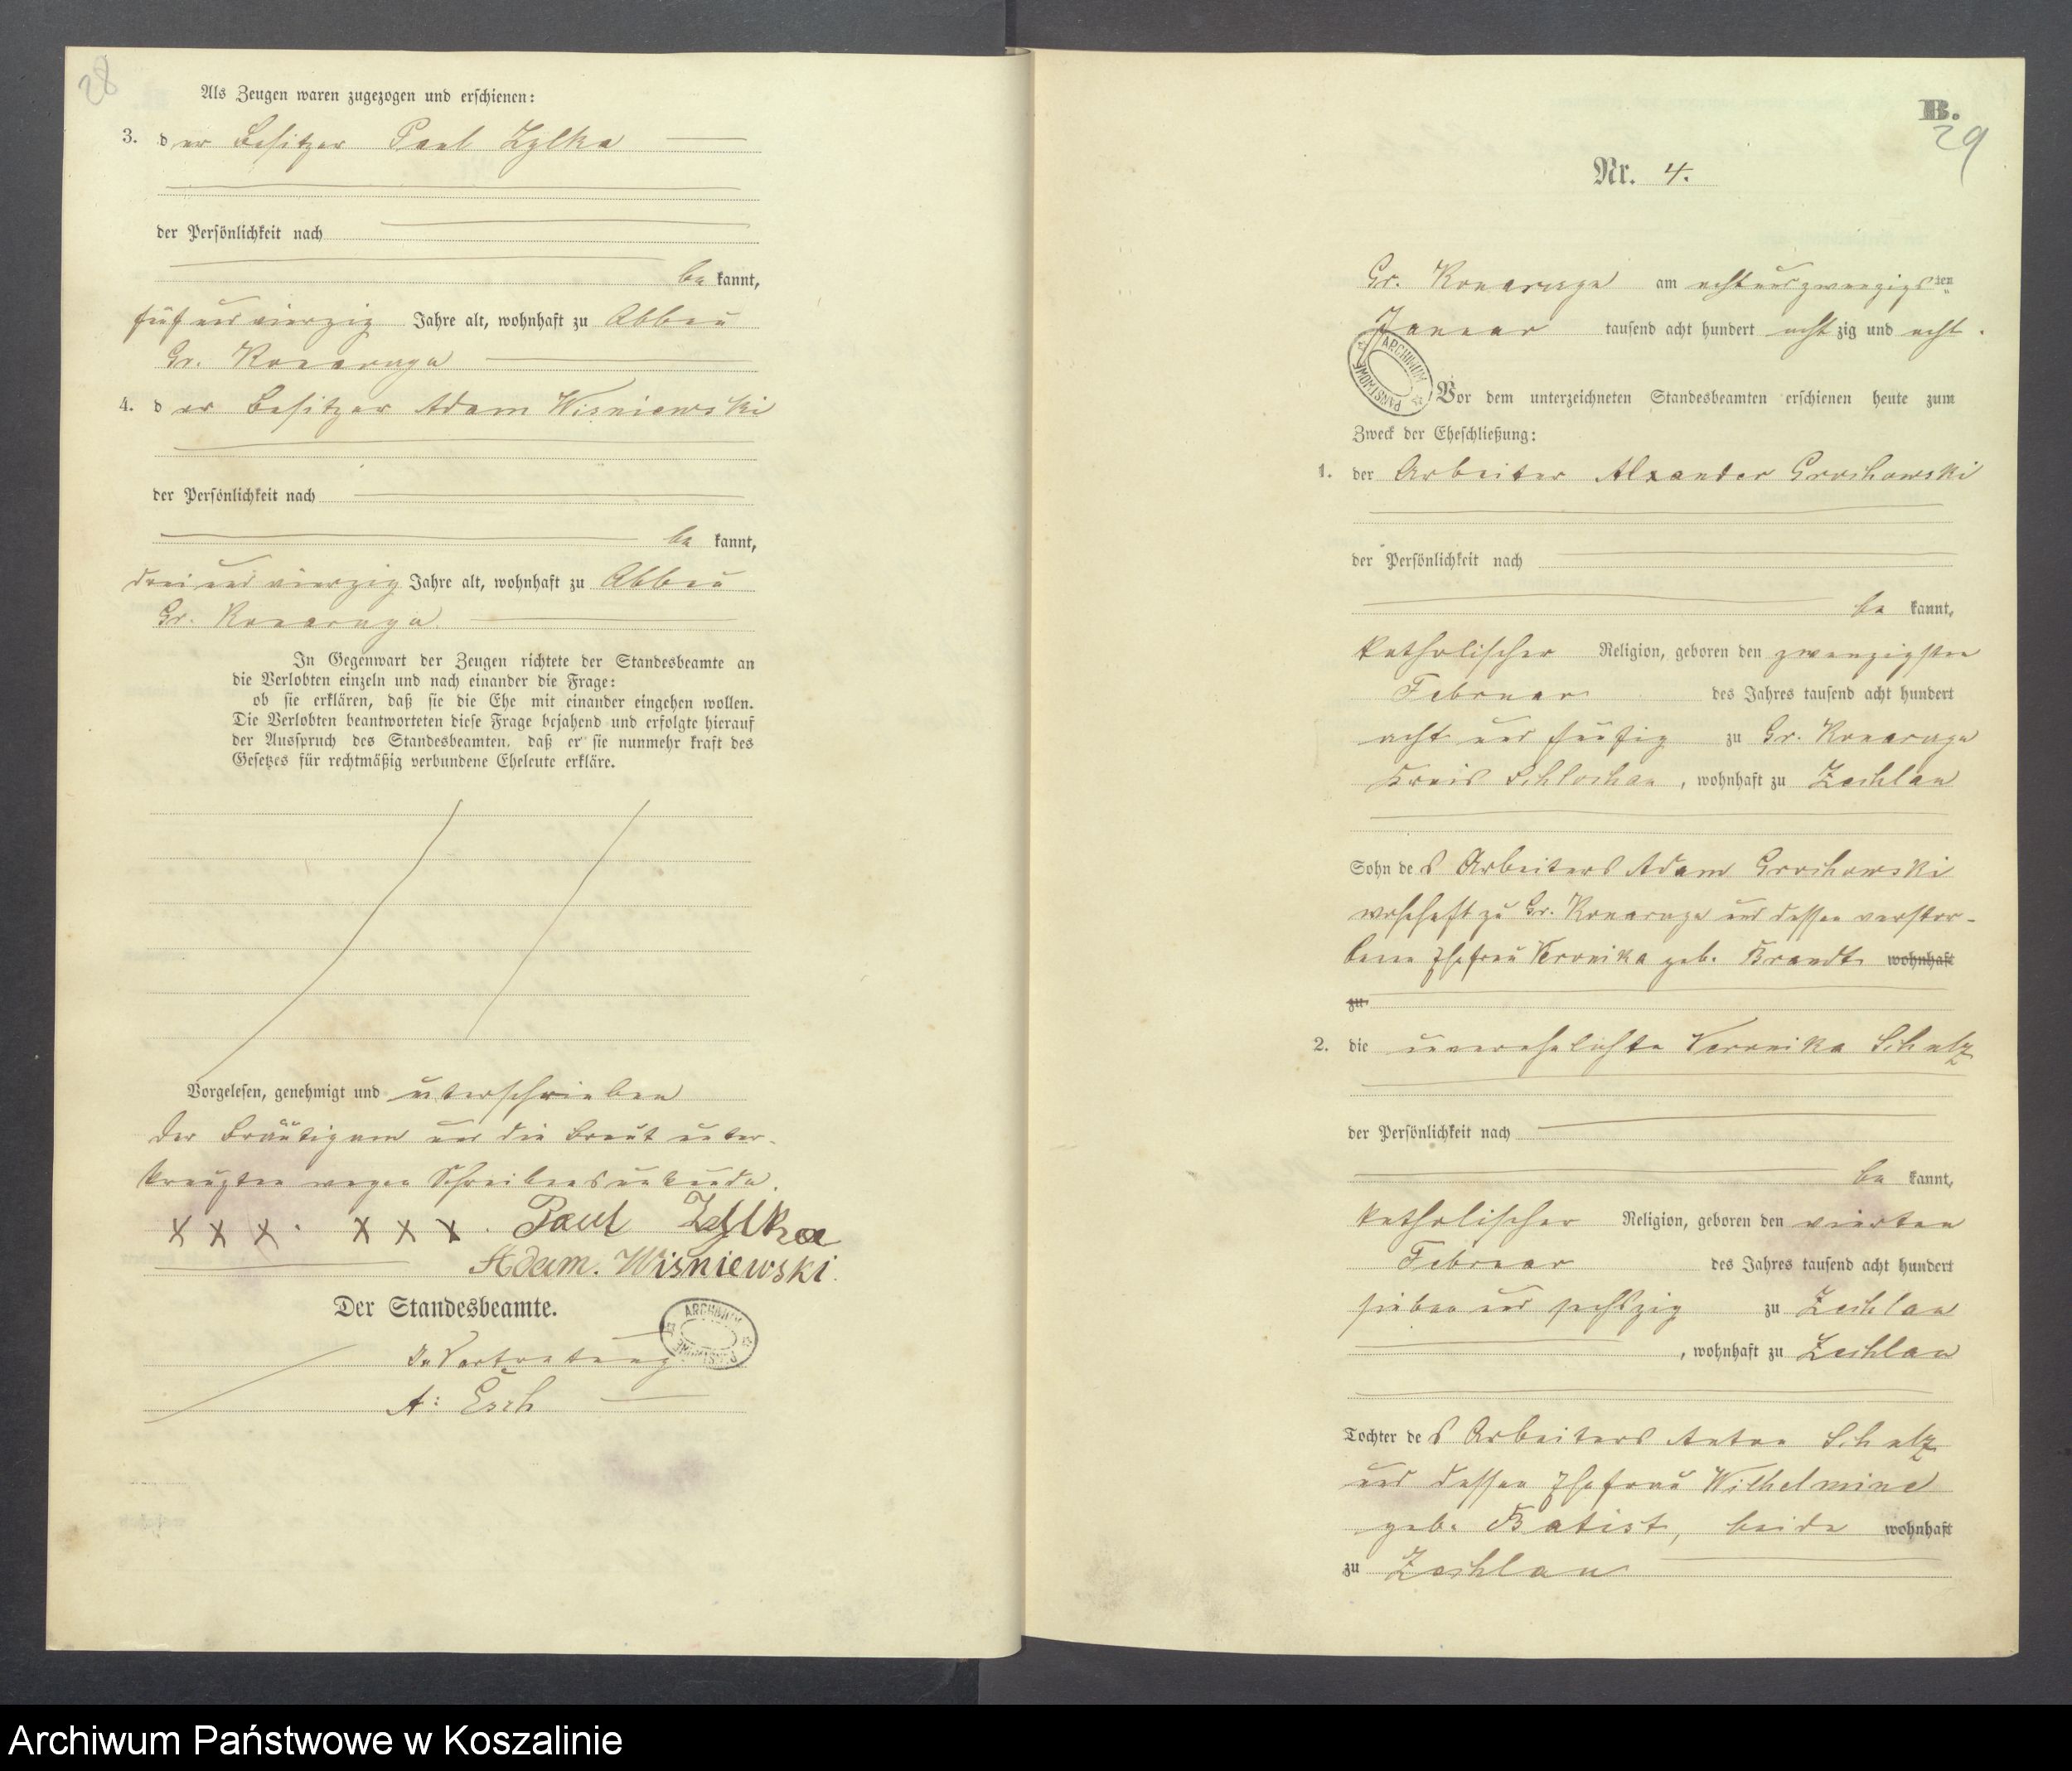 28
Als Zeugen waren zugezogen und erschienen:
3. der Besitzer Paul Zylka
der Persönlichkeit nach
bekannt,
fünf und vierzig Jahre alt, wohnhaft zu Abbau
Gr. Konarczyn
4. der Besitzer Adam Wisniewski
der Persönlichkeit nach
be kannt,
drei und vierzig Jahre alt, wohnhaft zu Abbau
Gr. Konarczyn
In Gegenwart der Zeugen richtete der Standesbeamte an
die Verlobten einzeln und nach einander die Frage:
ob sie erklären, daß sie die Ehe mit einander eingehen wollen.
Die Verlobten beantworteten diese Frage bejahend und erfolgte hierauf
der Ausspruch des Standesbeamten, daß er sie nunmehr kraft des
Gesetzes für rechtmäßig verbundene Eheleute erkläre.
Vorgelesen, genehmigt und unterschrieben
Der Bräutigam und die Braut unter-
kreuzten wegen Schreibensunkunde.
XXX. XXX. Paul Zylka
Adam. Wisniewski.
Der Standesbeamte.
In Vertretung
A: Esch
ARCHIWUM PAŃSTWOWE
B.
29
Nr. 4.
Gr. Konarczyn am acht und zwanzigsten
Januar tausend acht hundert acht zig und acht.
ARCHIWUM PAŃSTWOWE
Vor dem unterzeichneten Standesbeamten erschienen heute zum
Zweck der Eheschließung:
1. der Arbeiter Alxander Grochowski
der Persönlichkeit nach
be kannt,
katholischer Religion, geboren den zwanzigsten
Februar des Jahres tausend acht hundert
acht und fünfzig zu Gr. Konarczyn
Kreis Schlochau, wohnhaft zu Zechlau
Sohn des Arbeiters Adam Grochowski
wohnhaft zu Gr. Konarczyn und dessen verstor-
benen Ehefrau Veronika geb. Brandt wohnhaft
zu
2. die unverehelichte Veronika Schulz
der Persönlichkeit nach
be kannt,
katholischer Religion, geboren den vierten
Februar des Jahres tausend acht hundert
sieben und sechszig zu Zechlau
, wohnhaft zu Zechlau
Tochter des Arbeiters Anton Schulz
und dessen Ehefrau Wilhelmine
geb. Batist, beide wohnhaft
zu Zechlau
Archiwum Państwowe w Koszalinie